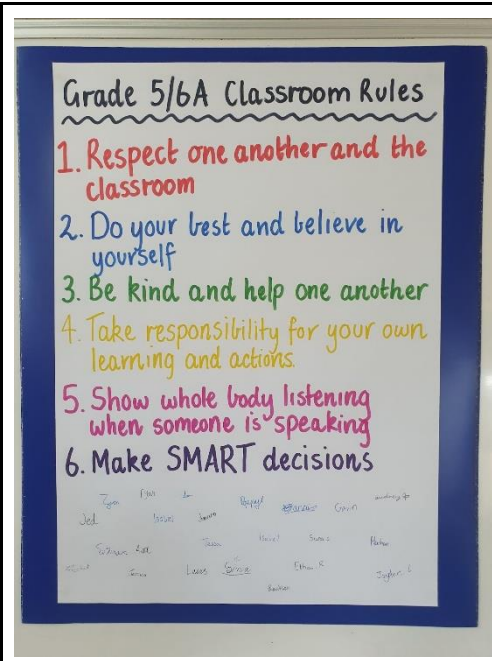 Grade 5/6A Classroom Rules
1. Respect one another and the
classroom
2. Do your best and believe in
yourself
3. Be kind and help one another
4. Take responsibility for your own
learning and actions.
5. Show whole body listening
when someone is speaking
6. Make SMART decisions
Gavin
Jed
Lucas
Ethan R